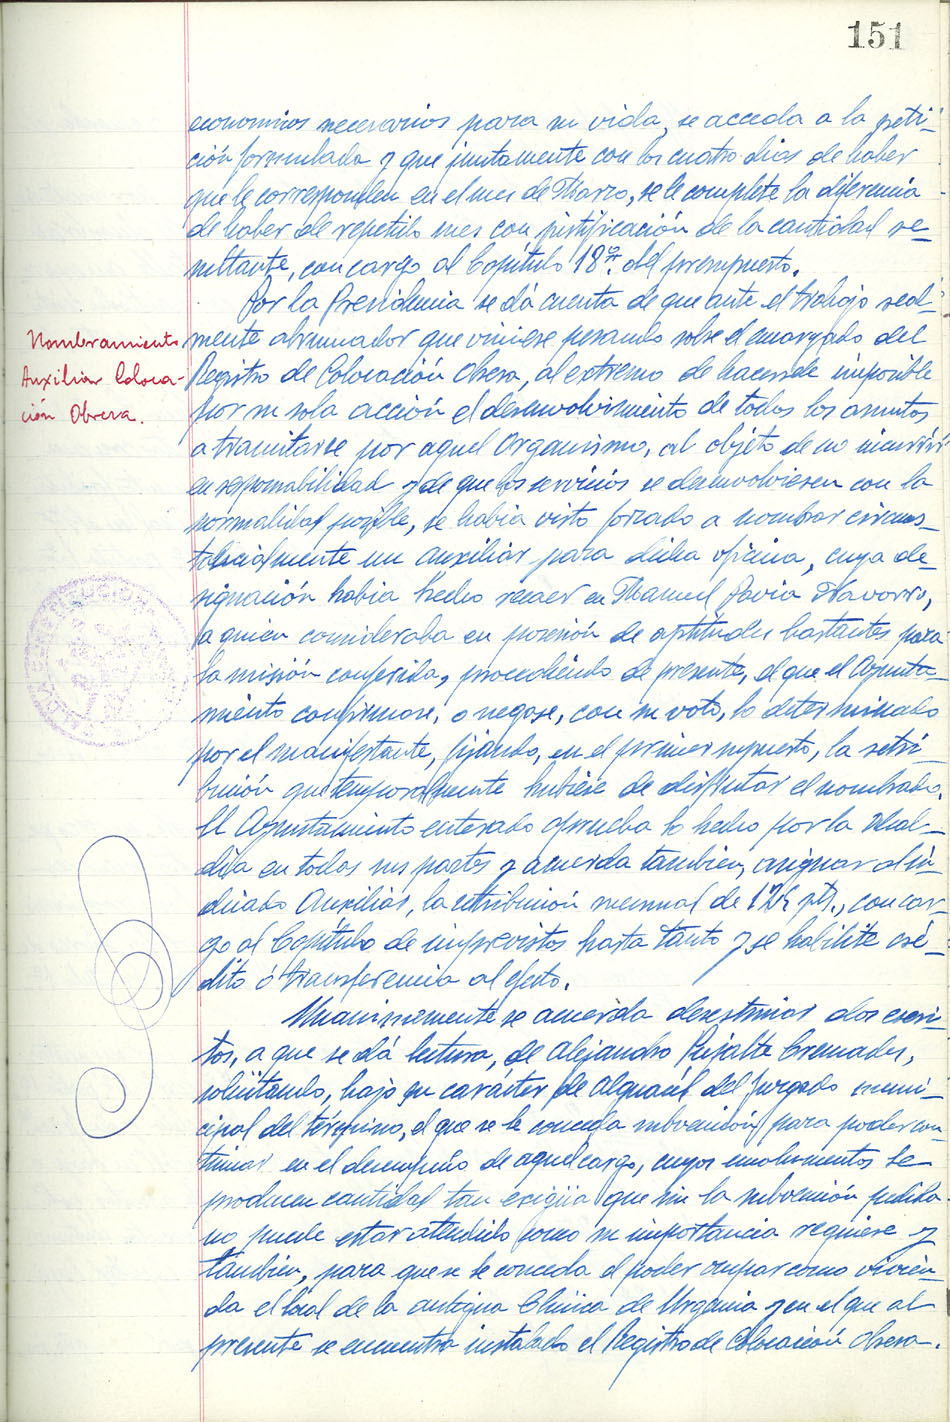 151
economicos necesarios para su vida, se acceda a la peti-
ción formulada y que juntamente con los cuatro dias de haber
que le corresponden en el mes de Marzo, se le complete la diferencia
de haber de repetido mes con justificación de la cantidad re-
sultante, con cargo al Capítulo 18º. del presupuesto.
Por la Presidencia se dá cuenta de que ante el trabajo real-
mente abrumador que viniese pesando sobre el encargado del
Registro de Colocación Obrera, al extremo de hacersele imposible
por su sola acción el desenvolvimiento de todos los asuntos
a tramitarse por aquel Organismo, al objeto de no incurrir
en responsabilidad y de que los servicios se desenvolviesen con la
normalidad posible, se habia visto forzado a nombrar circuns-
tancialmente un auxiliar para dicha oficina, cuya de-
signación habia hecho recaer en Manuel Pavia Navarro,
a quien consideraba en posesión de aptitudes bastantes para
la misión conferida, procediendo de presente, el que el Ayunta-
miento confirmase, o negase, con su voto, lo determinado
por el manifestante, fijando, en el primer supuesto, la retri-
bución que temporalmente hubiese de disfrutar el nombrado.
El Ayuntamiento enterado aprueba lo hecho por la Alcal-
día en todas sus partes y acuerda tambien, asignar al in-
dicado Auxiliar, la retribución mensual de pts., con car-
go al Capítulo de imprevistos hasta tanto y se habilite cré-
dito ó transferencia al efecto.
Unanimemente se acuerda desestimar dos escri-
tos, a que se dá lectura, de Alejandro Peralta Cremades,
solicitando, bajo su carácter de Alguacil del Juzgado muni-
cipal del término, el que se le conceda subvención para poder con-
tinuar en el desempeño de aquel cargo, cuyos emolumentos se
producen cantidad tan exigüa que sin la subvención pedida
no puede estar atendido como su importancia requiere y
tambien, para que se le conceda el poder ocupar como vivien-
da el local de la antigua Clínica de Urgencia y en el que al
presente se encuentra instalado el Registro de Colocación Obrera.
Nombramiento
Auxiliar Coloca-
ción Obrera.